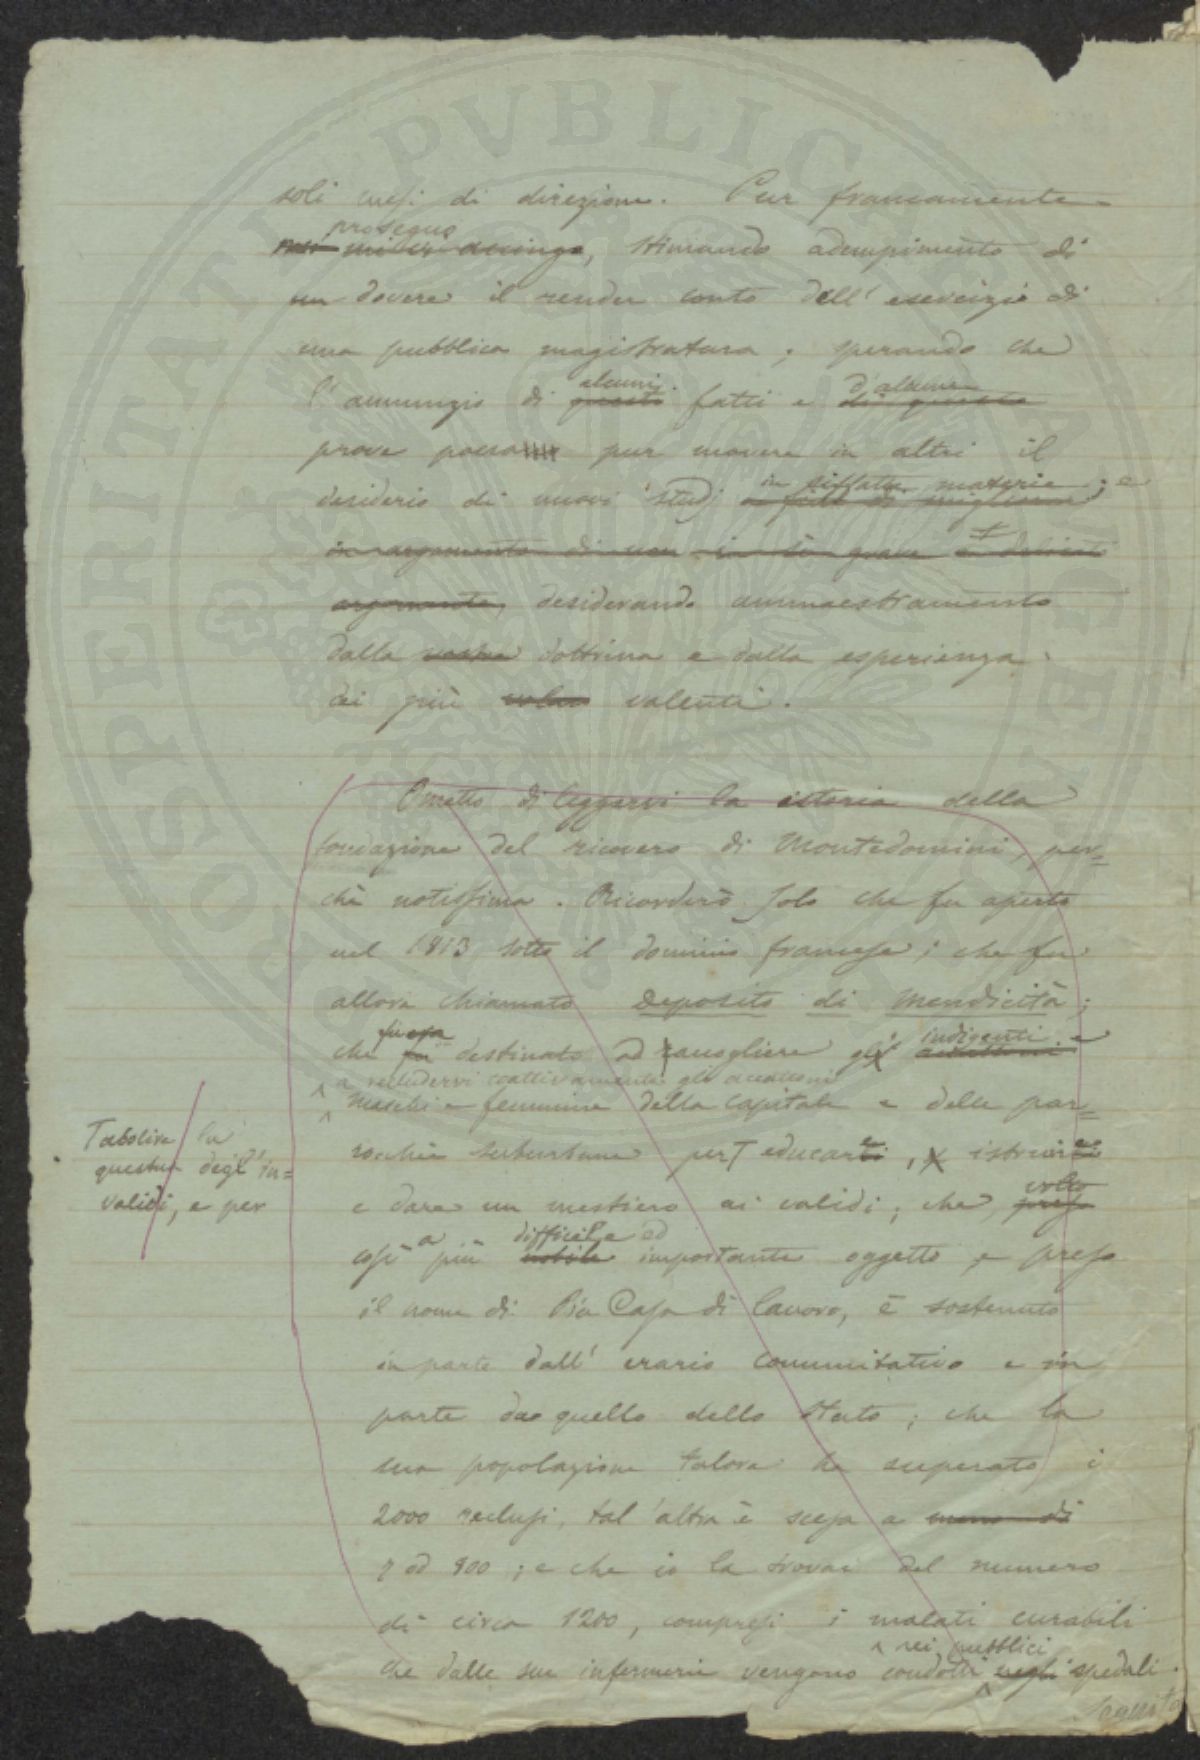 soli mesi di direzione. Pur francamente
proseguo
accingo, stimando adempimento di
un dovere il render conto dell'esercizio di
una pubblica magistratura; sperando che
alcuni d'alcune
l'annunzio di questi fatti e di queste
prove possa pur movere in altri il
in siffatte materie; e
desiderio di nuovi studj
in argomento di non in sì grave e delicato
argomento, desiderando ammaestramento
dalla vostra dottrina e dalla esperienza
dei più valenti.
Ometto di leggervi la istoria della
fondazione del ricovero di Montedomini, per=
chè notissima. Ricorderò solo che fu aperto
nel 1813 sotto il dominio francese; che fu
allora chiamato Deposito di Mendicità;
che fu destinato ad raccogliere gli indigenti e
a rechiudervi coattivamente gli accattoni
maschi e femmine della Capitale e delle par=
rocchie suburbane per educarli, istruirli
T abolire la
questua degl'in=
validi, e per
e dare un mestiero ai validi; che volto
difficile ed
così a più nobile importante oggetto e preso
il nome di Pia Casa di Lavoro, è sostenuto
in parte dall'erario comunitativo e in
parte da quello dello Stato; che la
sua popolazione talora ha superato i
2000 reclusi, tal'altra è scesa a meno di
7 od 800; e che io la trovai del numero
di circa 1200, compresi i malati curabili
nei pubblici
che dalle sue infermerie vengono condotti negli spedali.
PROSPERITATI PVBLICAE AVGENDAE